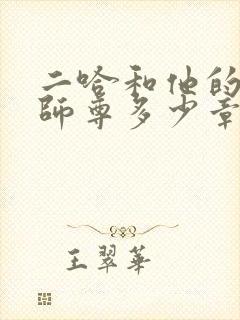 二哈和他的
師尊多少章
王翠華